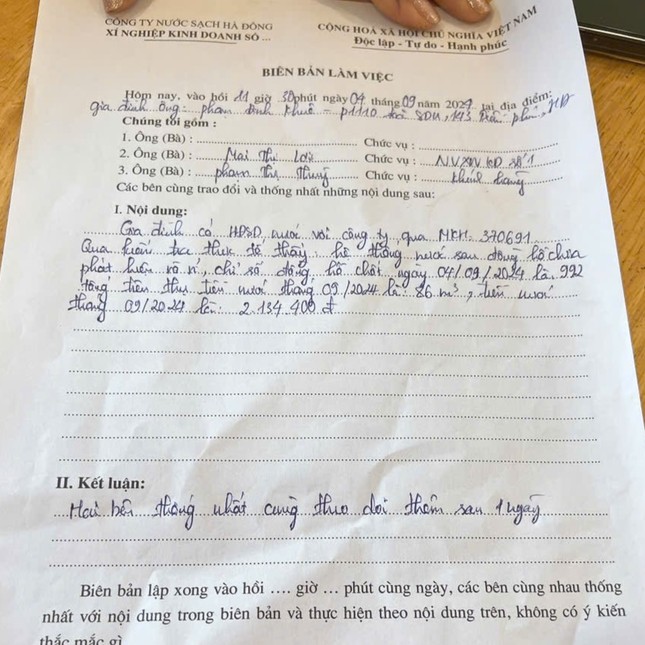 CÔNG TY NƯỚC SẠCH HÀ ĐÔNG
XÍ NGHIỆP KINH DOANH SỐ ...
CỘNG HOÀ XÃ HỘI CHỦ NGHĨA VIỆT NAM
Độc lập - Tự do - Hạnh phúc
BIÊN BẢN LÀM VIỆC
Hôm nay, vào hồi 11 giờ 30 phút ngày 04 tháng 09 năm 2024 tại địa điểm:
gia đình ông: phạm đình Khuê - p1110 toà SDU, 143 Trần phú, HĐ
Chúng tôi gồm :
1. Ông (Bà) : Chức vụ :
2. Ông (Bà) : Mai Thị Chức vụ : N.V.XN KD số 1
3. Ông (Bà) : phạm Thị Chức vụ : khách hàng
Các bên cùng trao đổi và thống nhất những nội dung sau:
I. Nội dung:
Gia đình có HĐSD nước với công ty, qua MKH: 370691
Qua kiểm tra thực tế thấy: hệ thống nước sau đồng hồ chưa
phát hiện rò rỉ, chỉ số đồng hồ chốt ngày 04/09/2024 là 992
tổng tiêu thụ tiền nước tháng 09/2024 là: 86 m³, tiền nước
tháng 09/2024 là: 2.134.400 đ
II. Kết luận:
Hai bên thống nhất cùng theo dõi thêm sau 1 ngày
Biên bản lập xong vào hồi .... giờ ... phút cùng ngày, các bên cùng nhau thống
nhất với nội dung trong biên bản và thực hiện theo nội dung trên, không có ý kiến
thắc mắc gì